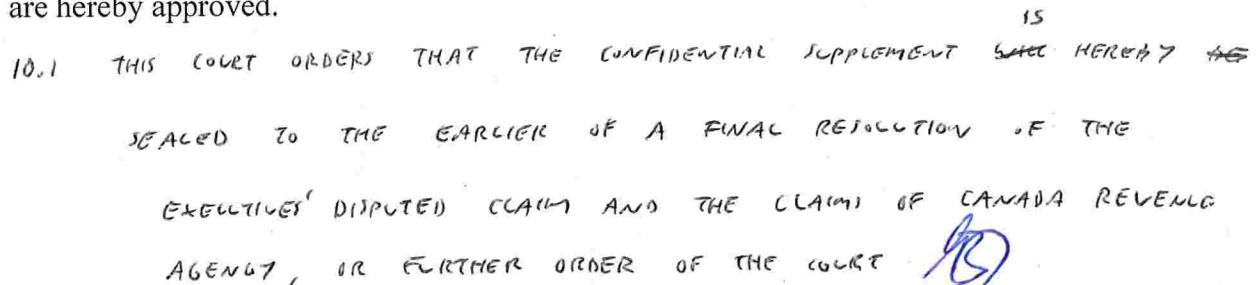 are hereby approved.
IS
10.1 THIS COURT ORDERS THAT THE CONFIDENTIAL SUPPLEMENT WILL HEREBY BE
SEALED TO THE EARLIER OF A FINAL RESOLUTION OF THE
EXECUTIVES' DISPUTED CLAIM AND THE CLAIMS OF CANADA REVENUE
AGENCY, OR FURTHER ORDER OF THE COURT